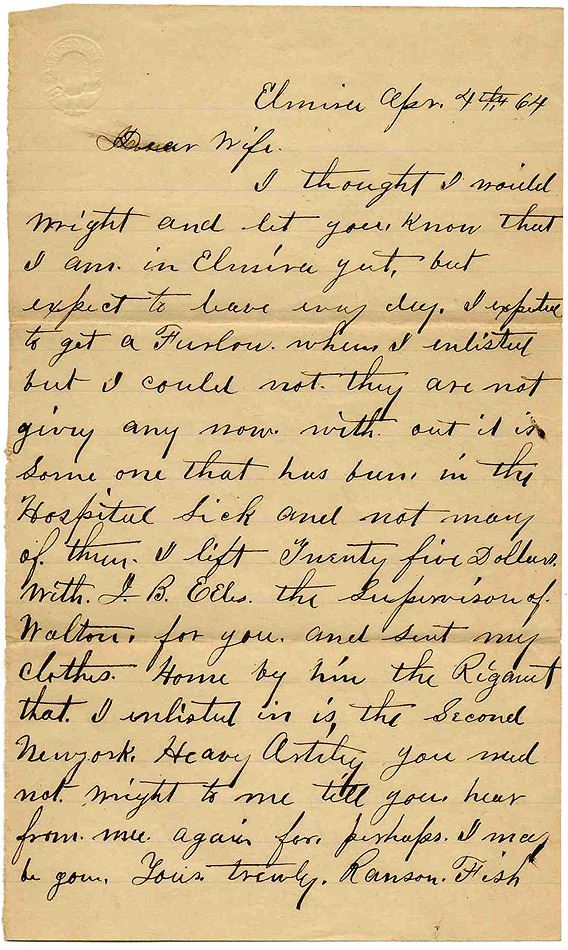 Elmira Apr. 4th, 64
Dear Wife.
I thought I would
wright and let you. Know that
I am. in Elmira yet, but
expect to leave evry day. I expected
to get a Furlow. when. I enlisted
but I could not. they are not
giving any now. with. out it is
some one that has been. in the
Hospital Sick and not many
of. them. I left Twenty five Dollars.
with. J. B. Eells. the Supervison of.
Walton. for you. and sent my
clothes. Home by him the Rigament
that. I enlisted in is, the Second
Newyork. Heavy Artiley you need
not. wright to me till you. hear
from. mee. again for. perhaps. I may
be gon. Yous. trewly. Ranson. Fish